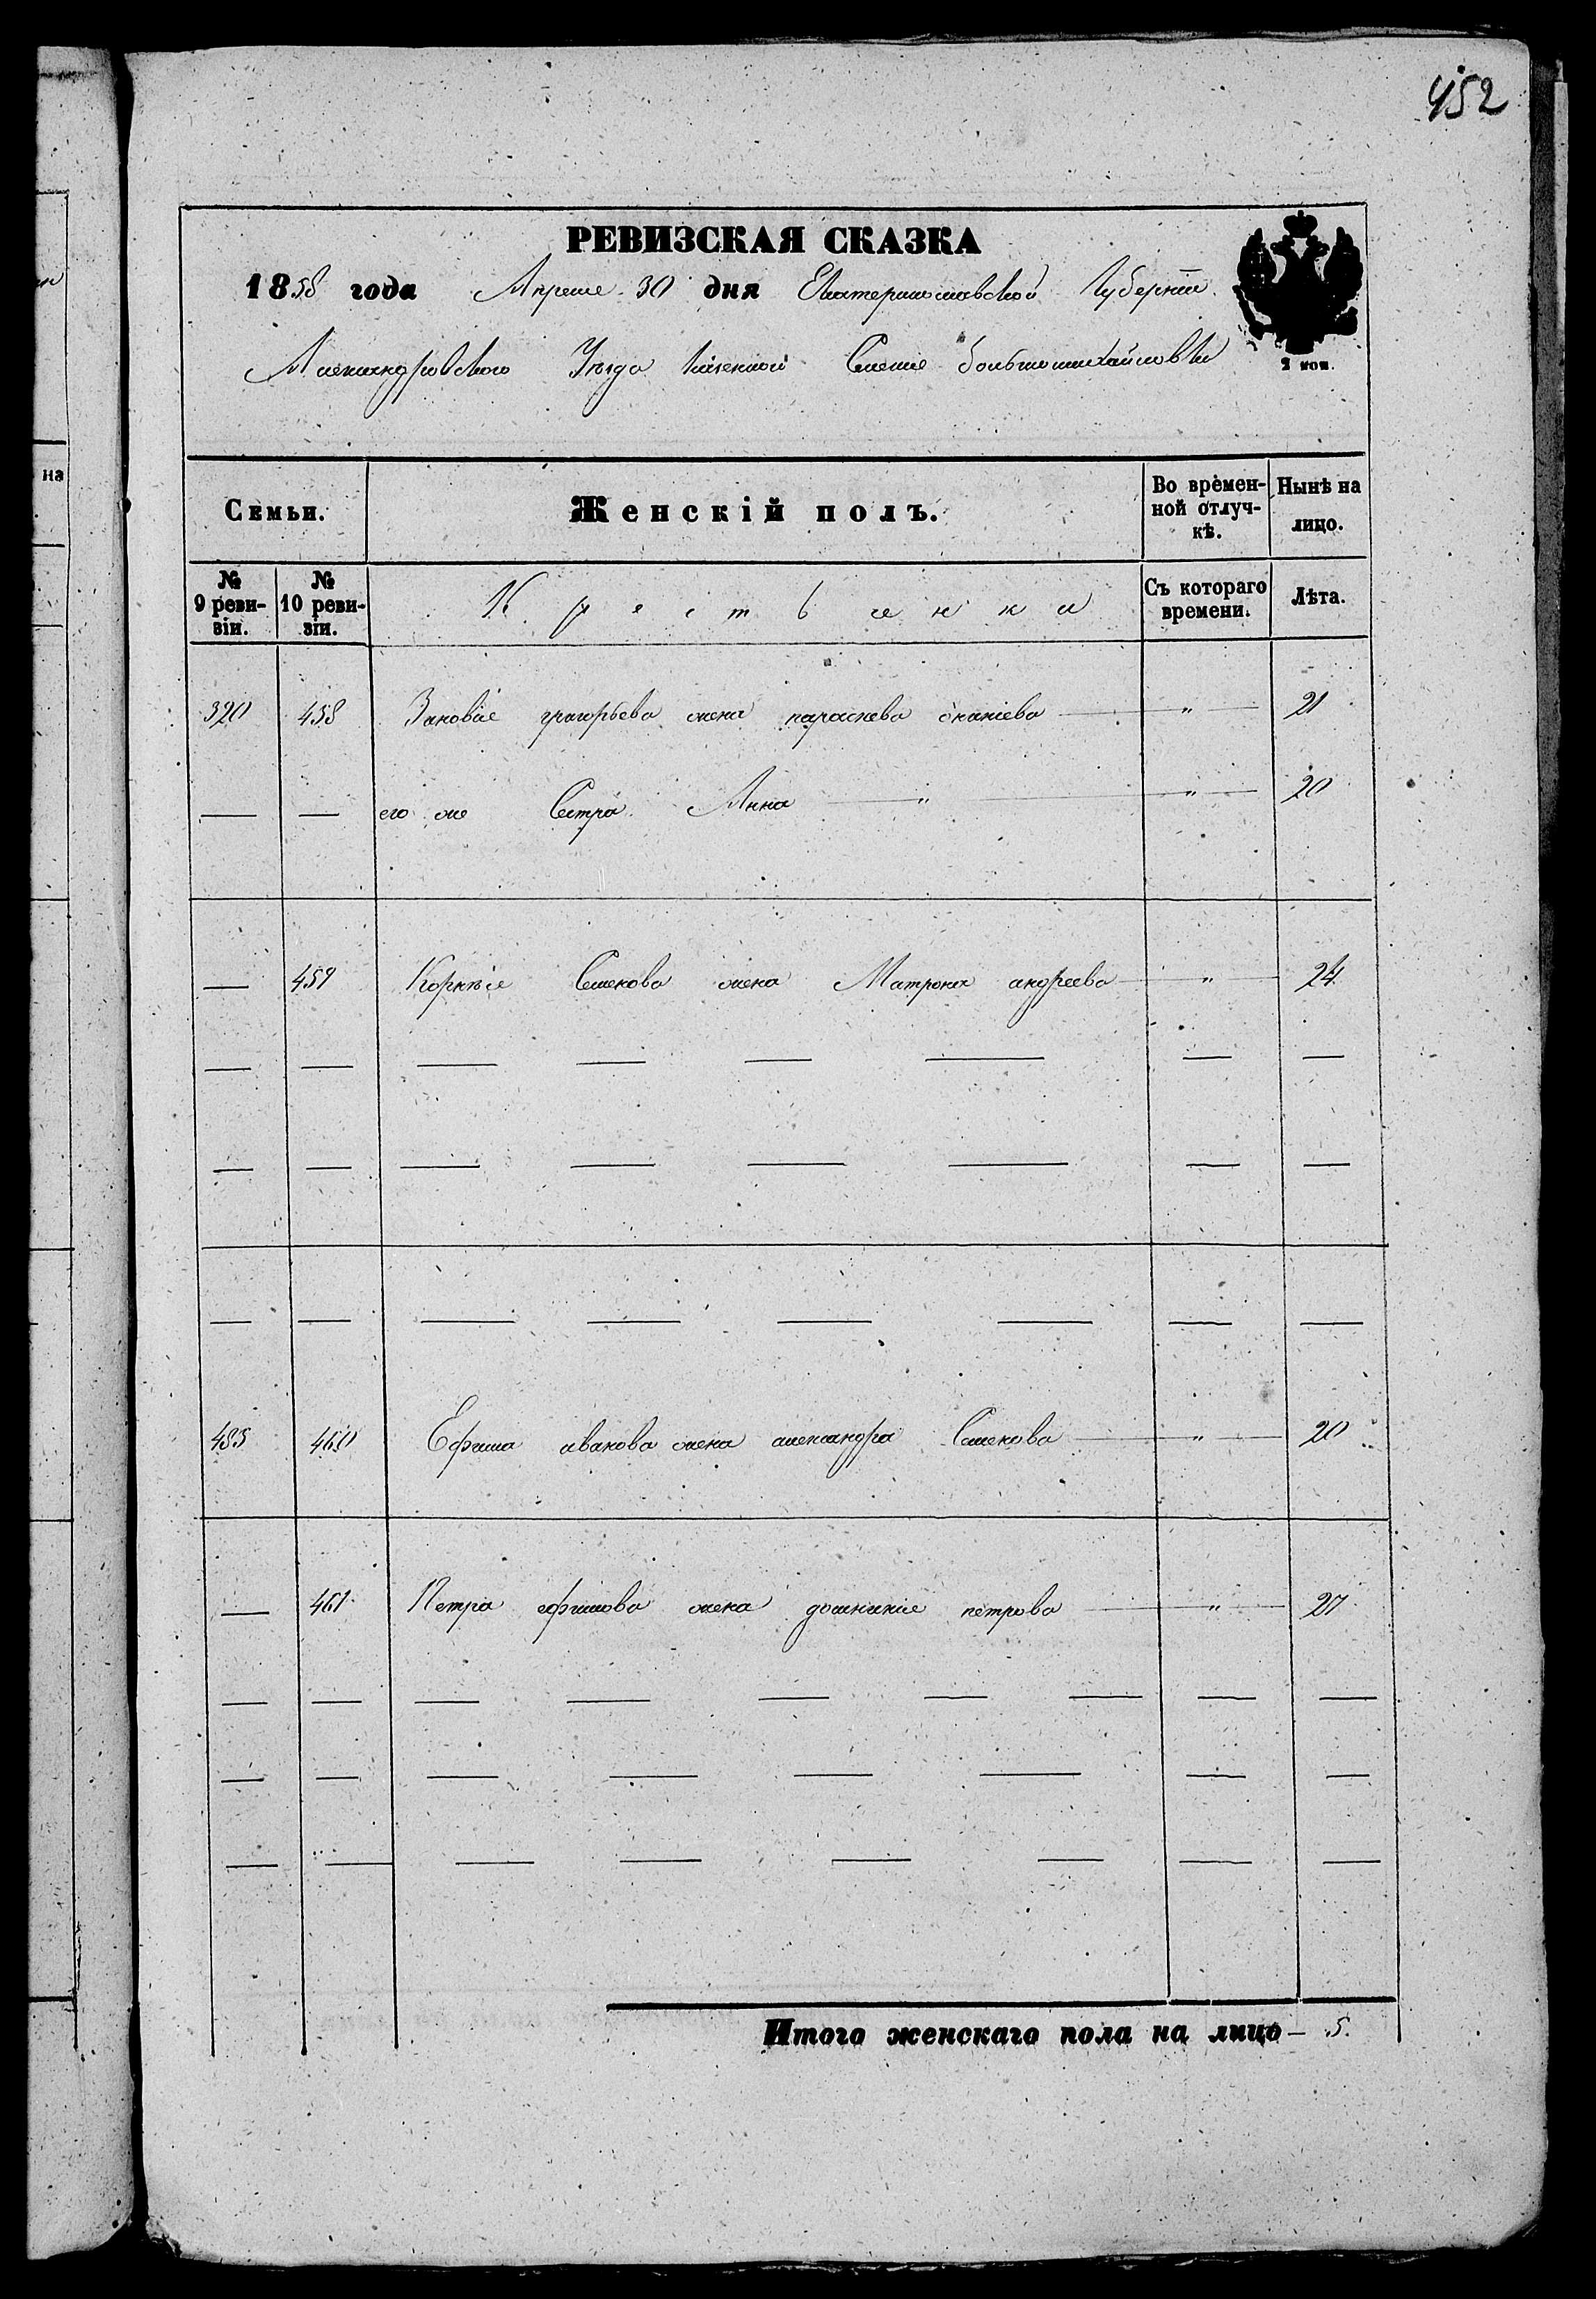 452
РЕВИЗСКАЯ СКАЗКА
1858 года Апреля 30 дня Екатеринославской Губернiи
Александровского Уезда казенной Селенiе большемихайловки
2 коп.
на
Семьи.
Женскій полъ.
Во времен-
ной отлуч-
кѣ.
Нынѣ на
лицо.
№
9 реви-
зіи.
№
10 реви-
зіи.
Крестьянки
Съ котораго
времени.
Лѣта.
320 458 Зиновiя григорьева жена параскева ананiева " 21
— — его же Сестра Анна " " 20
— 459 Корнѣя Семенова жена Матрона андреева " 24
485 460 Ефима иванова жена александра Семенова " 20
— 461 Петра ефимова жена домникiя петрова " 27
Итого женскаго пола на лицо — 5.